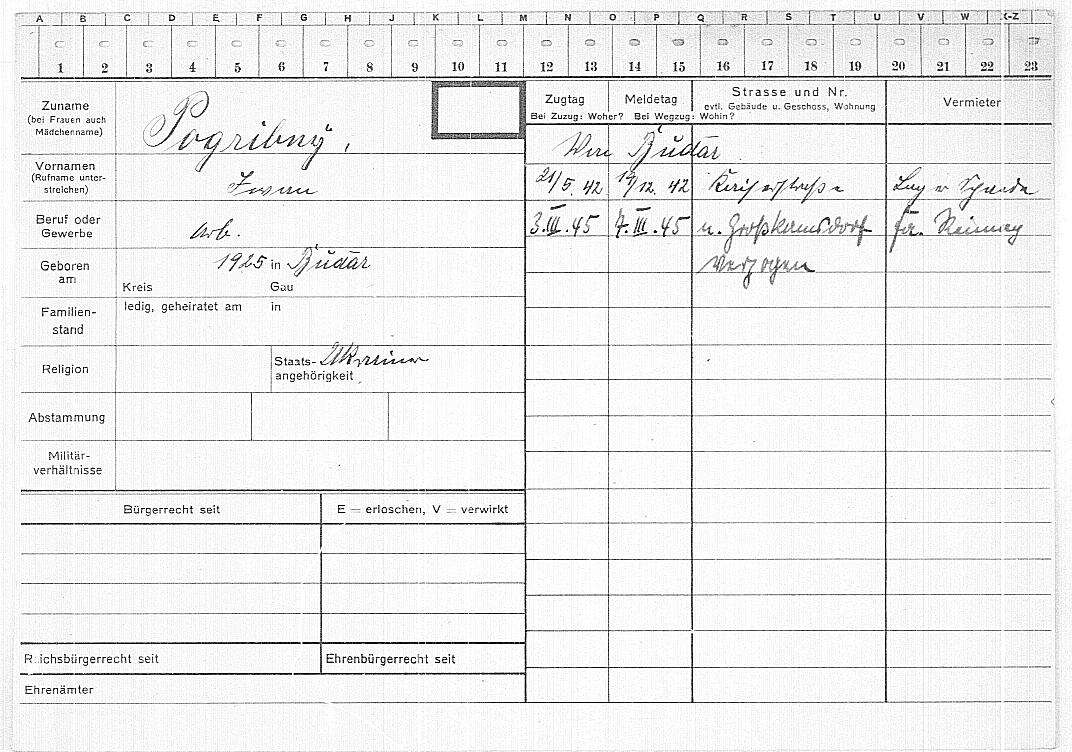 A B C D E F G H J K L M N O P Q R S T U V W X-Z
1 2 3 4 5 6 7 8 9 10 11 12 13 14 15 16 17 18 19 20 21 22 23
Zuname
(bei Frauen auch
Mädchenname)
Pogribnÿ,
Vornamen
(Rufname unter-
streichen)
Iwan
Beruf oder
Gewerbe
Arb.
Geboren
am
1925 in Budar
Kreis Gau
Familien-
stand
ledig, geheiratet am in
Religion
Staats-
angehörigkeit
Ukrainer
Abstammung
Militär-
verhältnisse
Bürgerrecht seit
E = erloschen, V = verwirkt
R.ichsbürgerrecht seit
Ehrenbürgerrecht seit
Ehrenämter
Zugtag Meldetag Strasse und Nr. Vermieter
Bei Zuzug: Woher? Bei Wegzug: Wohin? evtl. Gebäude u. Geschoss, Wohnung
Von Budar
21/5. 42 19/12. 42 Kaiserstraße Lager
3.III.45 7.III.45 n. Großkamsdorf fr.
verzogen